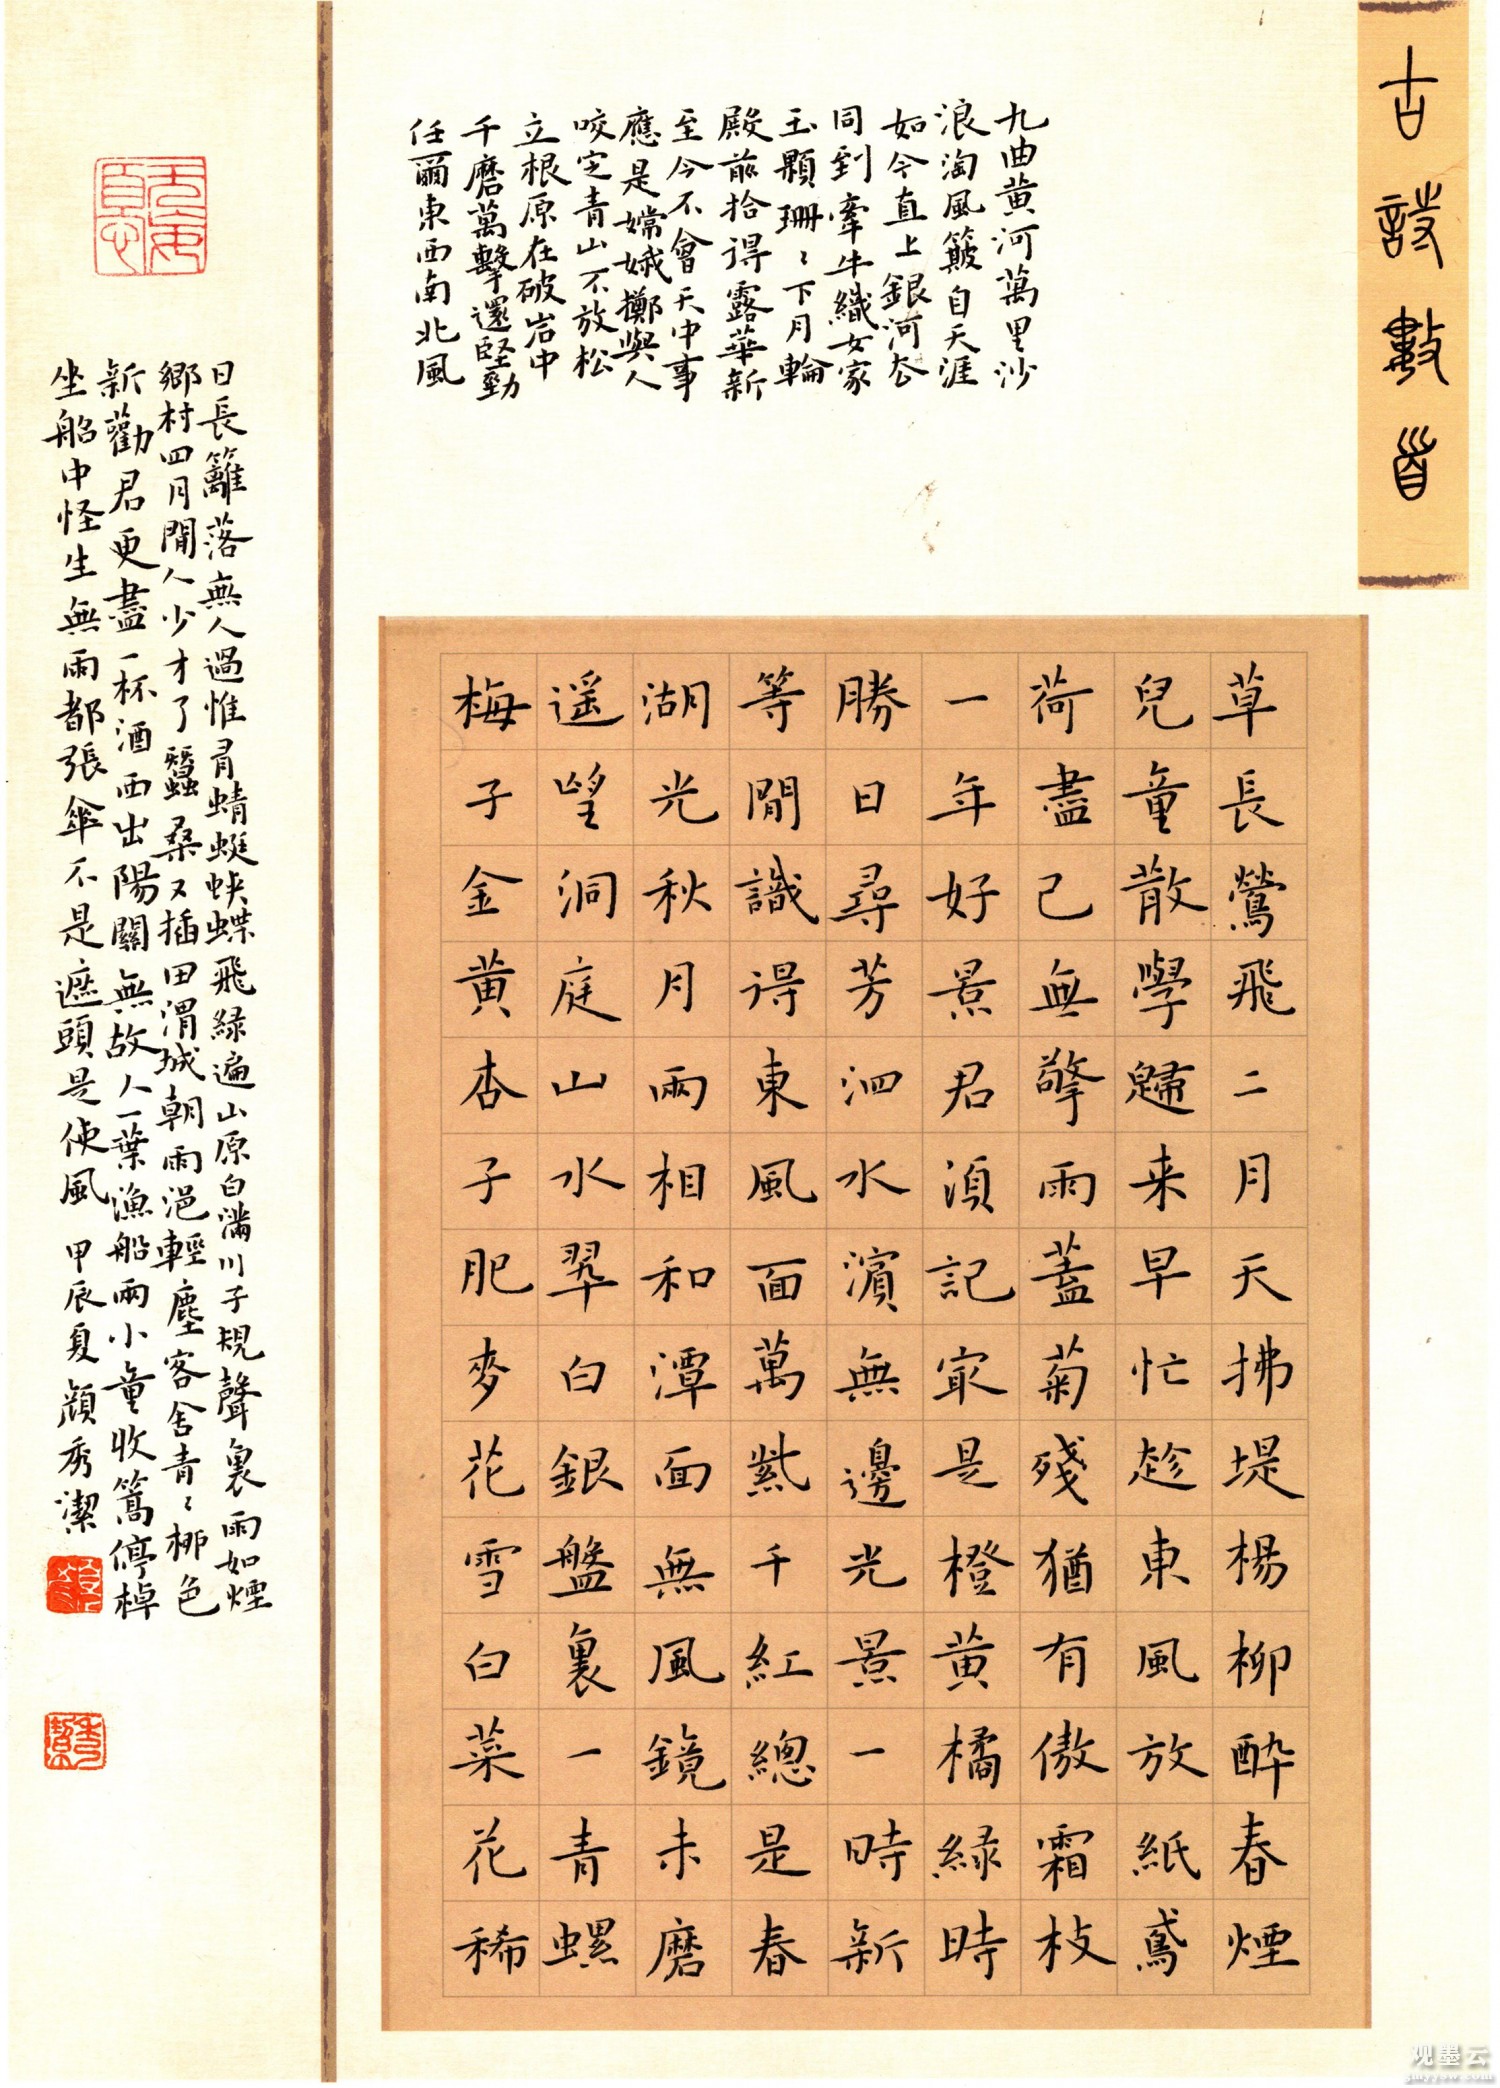 古詩數首
九曲黄河萬里沙
浪淘風簸自天涯
如今直上銀河去
同到牽牛織女家
玉顆珊〻下月輪
殿前拾得露華新
至今不會天中事
應是嫦娥擲與人
咬定青山不放松
立根原在破岩中
千磨萬擊還堅勁
任爾東西南北風
草長鶯飛二月天拂堤楊柳醉春煙
兒童散學歸来早忙趁東風放紙鳶
荷盡已無擎雨蓋菊殘猶有傲霜枝
一年好景君須記最是橙黄橘緑時
勝日尋芳泗水濱無邊光景一時新
等閒識得東風面萬紫千紅總是春
湖光秋月兩相和潭面無風鏡未磨
遥望洞庭山水翠白銀盤裏一青螺
梅子金黄杏子肥麥花雪白菜花稀
日長籬落無人過惟有蜻蜓蛱蝶飛緑遍山原白滿川子規聲裏雨如煙
鄉村四月閒人少才了蠶桑又插田渭城朝雨浥輕塵客舍青〻栁色
新勸君更盡一杯酒西出陽關無故人一葉漁船兩小童收篙停棹
坐船中怪生無雨都張傘不是遮頭是使風 甲辰夏 顔秀潔
秀潔
观墨云